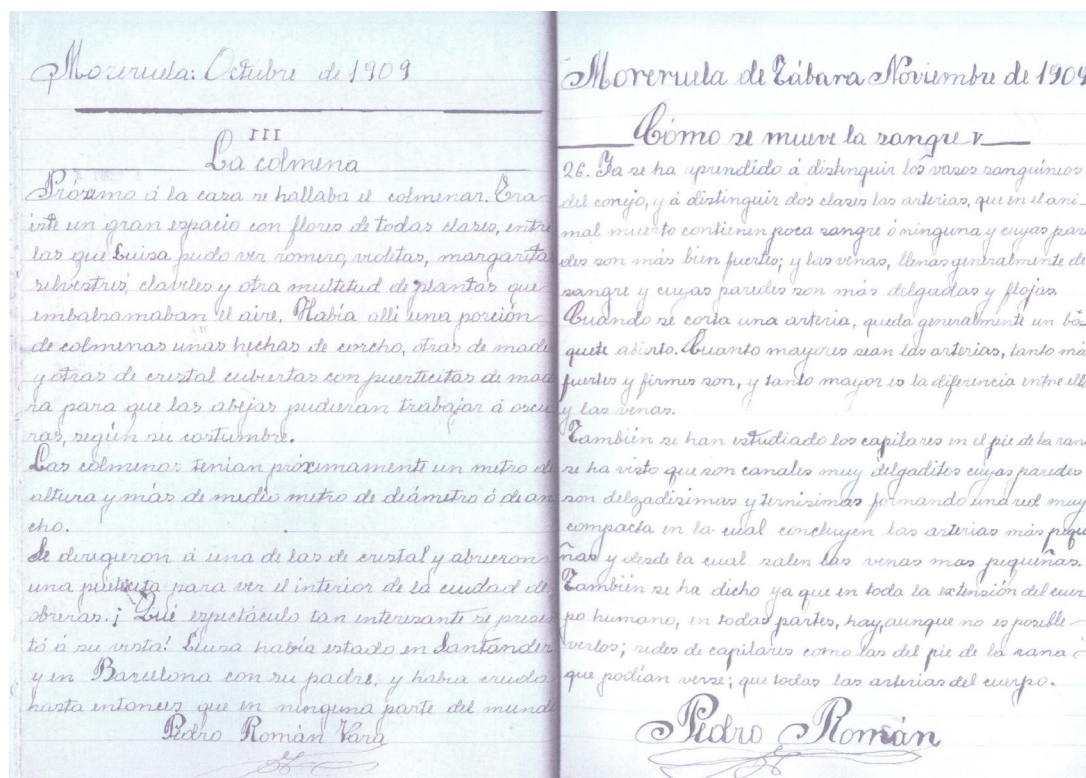 Moreruela: Octubre de 1909
III
La colmena
Próximo á la casa se hallaba el colmenar. Era
éste un gran espacio con flores de todas clases, entre
las que Luisa pudo ver romero, violetas, margaritas
silvestres, claveles y otra multitud de plantas que
embalsamaban el aire. Había allí una porción
de colmenas unas hechas de corcho, otras de made
y otras de cristal cubiertas con puertecitas de made
ra para que las abejas pudieran trabajar á oscu
ras, según su costumbre.
Las colmenas tenían próximamente un metro de
altura y más de medio metro de diámetro ó de an
cho.
Se dirigieron á una de las de cristal y abrieron
una puertecita para ver el interior de la ciudad de
obreras. ¡Qué espectáculo tan interesante se presen
tó á su vista! Luisa había estado en Santander
y en Barcelona con su padre, y había creido
hasta entonces que en ninguna parte del mundo
Pedro Román Vara
Moreruela de Tábara Noviembre de 1909
Cómo se mueve la sangre
26. Ya se ha aprendido á distinguir los vasos sanguíneos
del conejo, y á distinguir dos clases las arterias, que en el ani-
mal muerto contienen poca sangre ó ninguna y cuyas pare
des son más bien fuertes; y las venas, llenas generalmente de
sangre y cuyas paredes son más delgadas y flojas.
Cuando se corta una arteria, queda generalmente un bo
quete abierto. Cuanto mayores sean las arterias, tanto más
fuertes y firmes son, y tanto mayor es la diferencia entre ellas
y las venas.
También se han estudiado los capilares en el pie de la rana
se ha visto que son canales muy delgaditos cuyas paredes
son delgadisimas y ternisimas formando una red muy
compacta en la cual concluyen las arterias más peque
ñas y desde la cual salen las venas mas pequeñas.
También se ha dicho ya que en toda la extensión del cuer
po humano, en todas partes, hay, aunque no es posible
verlos; redes de capilares como las del pie de la rana
que podían verse; que todas las arterias del cuerpo.
Pedro Román